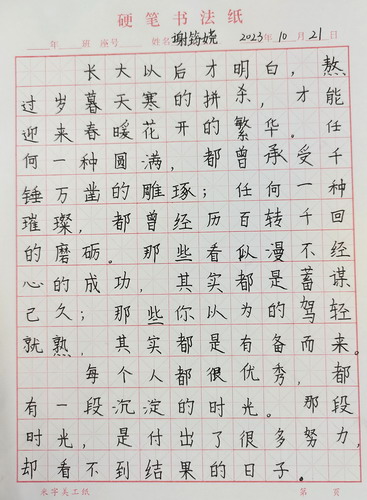 硬笔书法纸
年 班 座号 姓名 谢筠娆 2023年10月21日
长大以后才明白，熬
过岁暮天寒的拼杀，才能
迎来春暖花开的繁华。任
何一种圆满，都曾承受千
锤万凿的雕琢；任何一种
璀璨，都曾经历百转千回
的磨砺。那些看似漫不经
心的成功，其实都是蓄谋
已久；那些你以为的驾轻
就熟，其实都是有备而来。
每个人都很优秀，都
有一段沉淀的时光。那段
时光，是付出了很多努力，
却看不到结果的日子。
米字美工纸 第 页